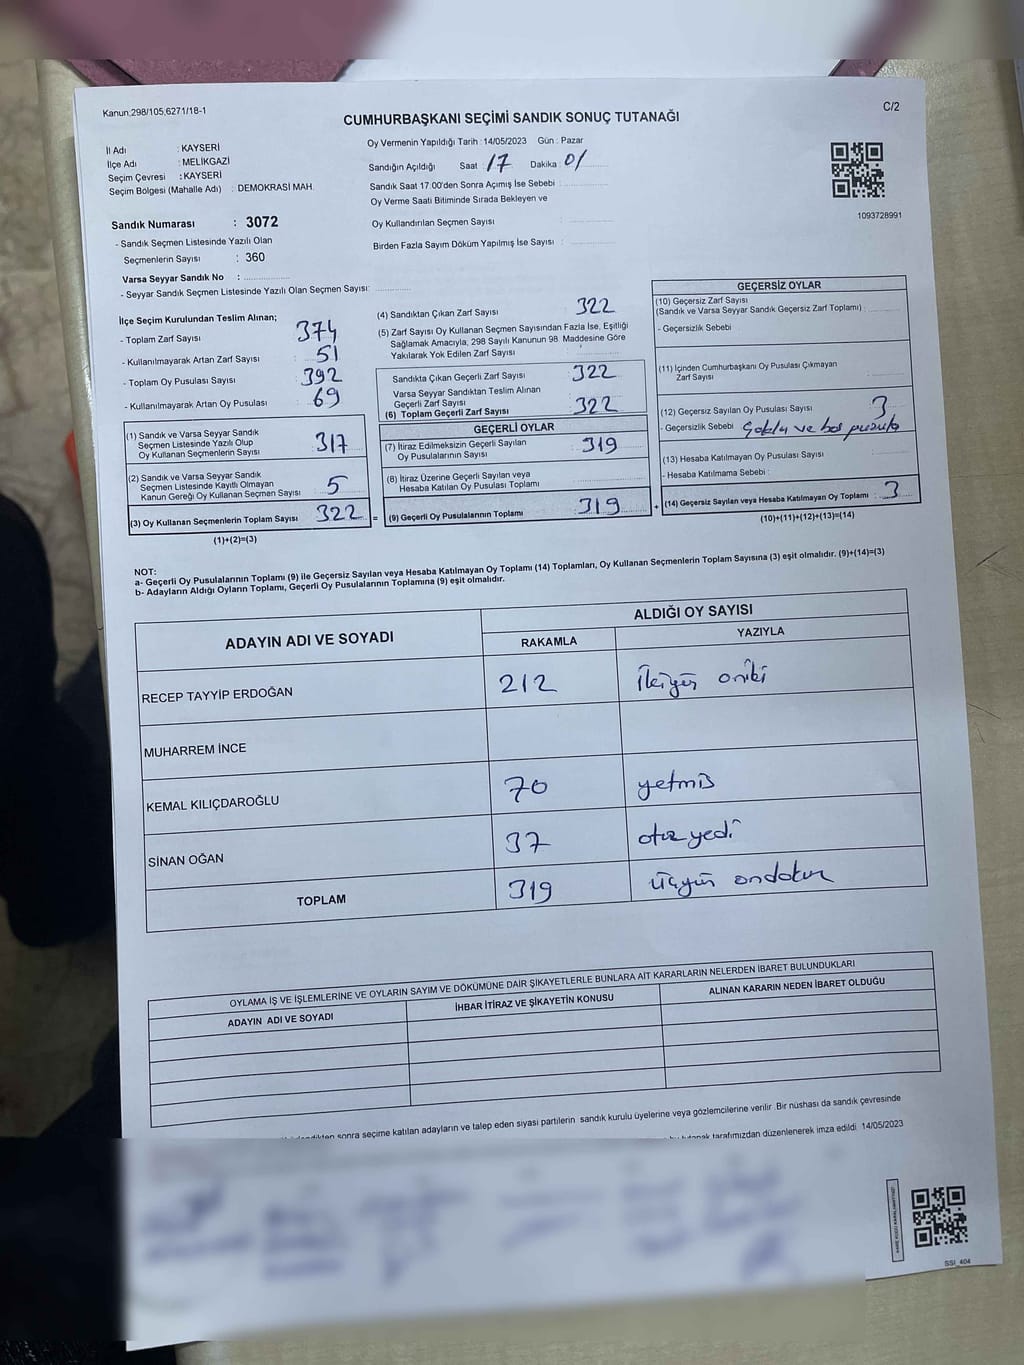 Kanun;298/105;6271/18-1
C/2
CUMHURBAŞKANI SEÇİMİ SANDIK SONUÇ TUTANAĞI
İl Adı : KAYSERİ
İlçe Adı : MELİKGAZİ
Seçim Çevresi : KAYSERİ
Seçim Bölgesi (Mahalle Adı) : DEMOKRASİ MAH.
Oy Vermenin Yapıldığı Tarih : 14/05/2023 Gün : Pazar
Sandığın Açıldığı Saat : 17 Dakika : 01
Sandık Saat 17:00'den Sonra Açımış İse Sebebi :
Oy Verme Saati Bitiminde Sırada Bekleyen ve
Oy Kullandırılan Seçmen Sayısı :
Birden Fazla Sayım Döküm Yapılmış İse Sayısı :
1093728991
Sandık Numarası : 3072
- Sandık Seçmen Listesinde Yazılı Olan
Seçmenlerin Sayısı : 360
Varsa Seyyar Sandık No :
- Seyyar Sandık Seçmen Listesinde Yazılı Olan Seçmen Sayısı:
İlçe Seçim Kurulundan Teslim Alınan;
- Toplam Zarf Sayısı : 374
- Kullanılmayarak Artan Zarf Sayısı : 51
- Toplam Oy Pusulası Sayısı : 392
- Kullanılmayarak Artan Oy Pusulası : 69
(1) Sandık ve Varsa Seyyar Sandık
Seçmen Listesinde Yazılı Olup
Oy Kullanan Seçmenlerin Sayısı : 317
(2) Sandık ve Varsa Seyyar Sandık
Seçmen Listesinde Kayıtlı Olmayan
Kanun Gereği Oy Kullanan Seçmen Sayısı : 5
(3) Oy Kullanan Seçmenlerin Toplam Sayısı : 322 =
(1)+(2)=(3)
(4) Sandıktan Çıkan Zarf Sayısı : 322
(5) Zarf Sayısı Oy Kullanan Seçmen Sayısından Fazla İse, Eşitliği
Sağlamak Amacıyla, 298 Sayılı Kanunun 98. Maddesine Göre
Yakılarak Yok Edilen Zarf Sayısı :
Sandıkta Çıkan Geçerli Zarf Sayısı : 322
Varsa Seyyar Sandıktan Teslim Alınan
Geçerli Zarf Sayısı :
(6) Toplam Geçerli Zarf Sayısı : 322
GEÇERLİ OYLAR
(7) İtiraz Edilmeksizin Geçerli Sayılan
Oy Pusulalarının Sayısı : 319
(8) İtiraz Üzerine Geçerli Sayılan veya
Hesaba Katılan Oy Pusulası Toplamı :
(9) Geçerli Oy Pusulalarının Toplamı : 319 +
GEÇERSİZ OYLAR
(10) Geçersiz Zarf Sayısı
(Sandık ve Varsa Seyyar Sandık Geçersiz Zarf Toplamı) :
- Geçersizlik Sebebi
(11) İçinden Cumhurbaşkanı Oy Pusulası Çıkmayan
Zarf Sayısı :
(12) Geçersiz Sayılan Oy Pusulası Sayısı : 3
- Geçersizlik Sebebi : çoklu ve boş pusula
(13) Hesaba Katılmayan Oy Pusulası Sayısı :
- Hesaba Katılmama Sebebi :
(14) Geçersiz Sayılan veya Hesaba Katılmayan Oy Toplamı : 3
(10)+(11)+(12)+(13)=(14)
NOT:
a- Geçerli Oy Pusulalarının Toplamı (9) ile Geçersiz Sayılan veya Hesaba Katılmayan Oy Toplamı (14) Toplamları, Oy Kullanan Seçmenlerin Toplam Sayısına (3) eşit olmalıdır. (9)+(14)=(3)
b- Adayların Aldığı Oyların Toplamı, Geçerli Oy Pusulalarının Toplamına (9) eşit olmalıdır.
ADAYIN ADI VE SOYADI
ALDIĞI OY SAYISI
RAKAMLA YAZIYLA
RECEP TAYYİP ERDOĞAN 212 İkiyüz oniki
MUHARREM İNCE
KEMAL KILIÇDAROĞLU 70 yetmiş
SİNAN OĞAN 37 otuz yedi
TOPLAM 319 üçyüz ondokuz
OYLAMA İŞ VE İŞLEMLERİNE VE OYLARIN SAYIM VE DÖKÜMÜNE DAİR ŞİKAYETLERLE BUNLARA AİT KARARLARIN NELERDEN İBARET BULUNDUKLARI
ADAYIN ADI VE SOYADI İHBAR İTİRAZ VE ŞİKAYETİN KONUSU ALINAN KARARIN NEDEN İBARET OLDUĞU
sonra seçime katılan adayların ve talep eden siyasi partilerin sandık kurulu üyelerine veya gözlemcilerine verilir. Bir nüshası da sandık çevresinde
tutanak tarafımızdan düzenlenerek imza edildi. 14/05/2023
SSI_404